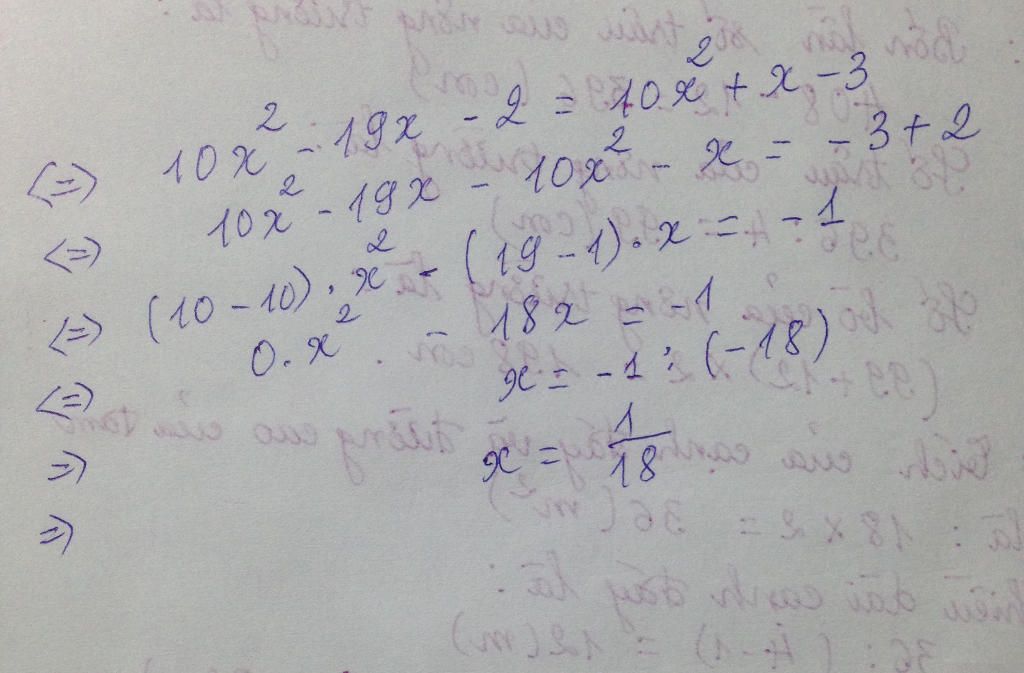 <=> 10x² - 19x - 2 = 10x² + x - 3
<=> 10x² - 19x - 10x² - x = -3 + 2
<=> (10 - 10) . x² - (19 - 1) . x = -1
<=> 0 . x² - 18x = -1
=> x = -1 : (-18)
=> x = 1/18